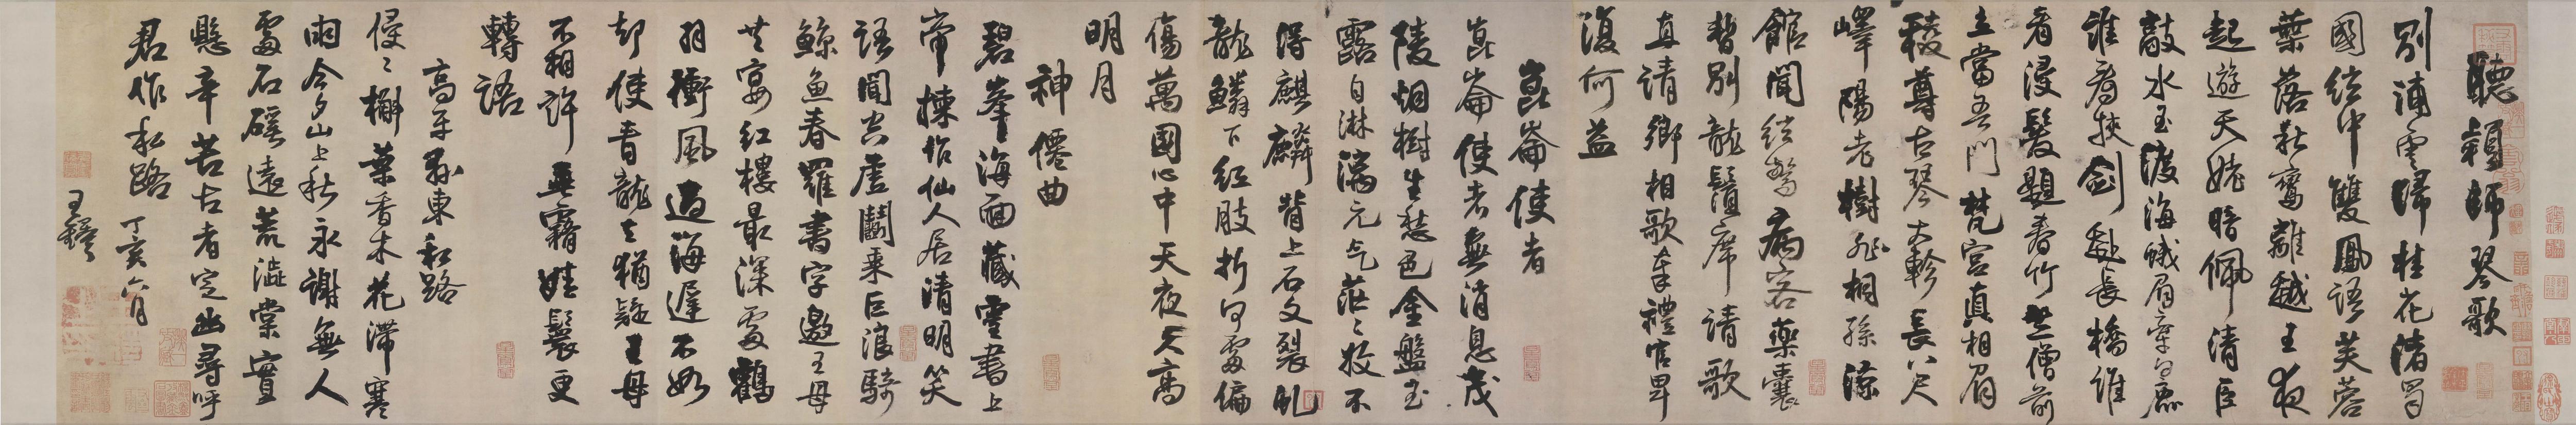 聽穎師琴歌
別浦雲歸桂花渚蜀
國絃中雙鳳語芙蓉
葉落秋鸞離越王夜
起遊天姥暗佩清臣
敲水玉渡海蛾眉牽白鹿
誰看挾劍赴長橋誰
看浸髮題春竹竺僧前
立當吾門梵宮真相眉
稜尊古琴大軫長八尺
嶧陽老樹非桐孫涼
館聞絃驚病客藥囊
暫別龍鬚席請歌
直請卿相歌奉禮官卑
復何益
崑崙使者
崑崙使者無消息茂
陵烟樹生愁色金盤玉
露自淋漓元气茫〻收不
得麒麟背上石文裂虬
龍鱗下紅肢折何處偏
傷萬國心中天夜久高
明月
神僊曲
碧峯海面藏靈書上
帝揀作仙人居清明笑
語聞空虛鬭乘巨浪騎
鯨魚春羅書字邀王母
共宴紅樓最深處鶴
羽衝風過海遲不如
却使青龍去猶疑王母
不相許垂霧娃鬟更
轉語
高平縣東私路
侵〻槲葉香木花滯寒
雨今夕山上秋永謝無人
處石磎遠荒澁棠實
懸辛苦古者定幽尋呼
君作私路 丁亥六月
王鐸